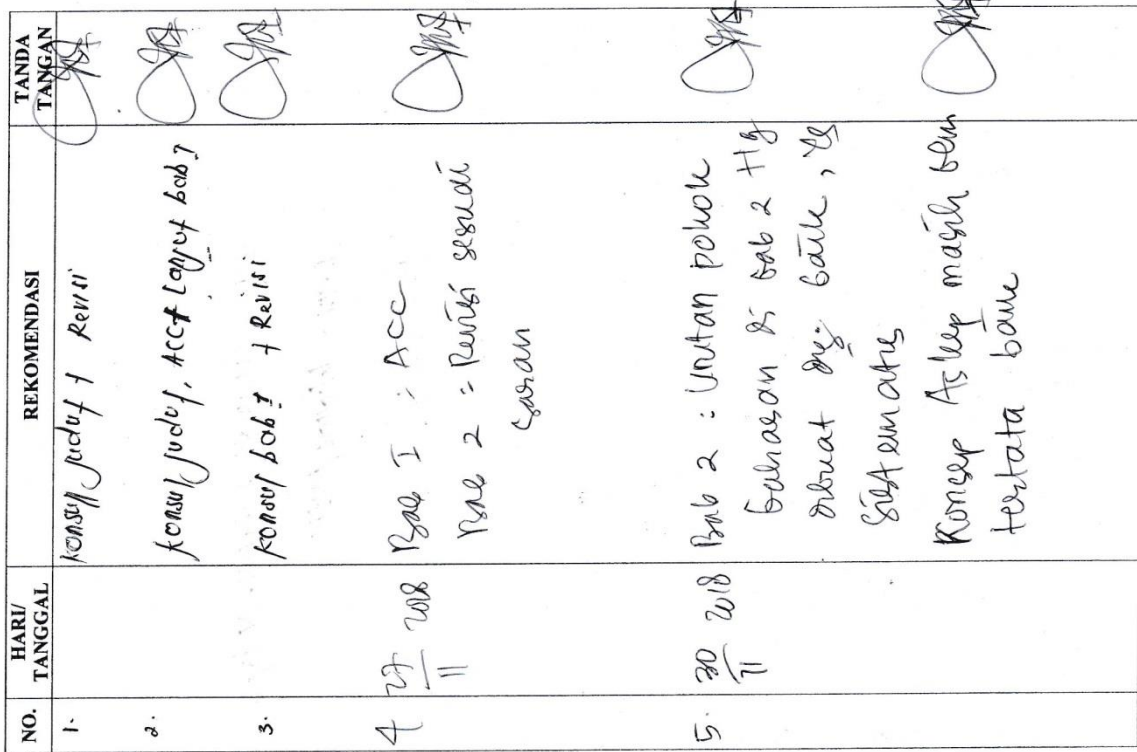 NO.
HARI/
TANGGAL
REKOMENDASI
TANDA
TANGAN
1.
Konsul judul + Revisi
2.
Konsul judul, ACC + Lanjut bab I
3.
Konsul bab I + Revisi
4
27/11 2018
Bab I : Acc
Bab 2 : Revisi sesuai
saran
5.
30/11 2018
Bab 2 : Urutan pokok
bahasan di bab 2 Hg
dibuat dg. baik, yg
sistematis
Konsep Askep masih blm
tertata baik